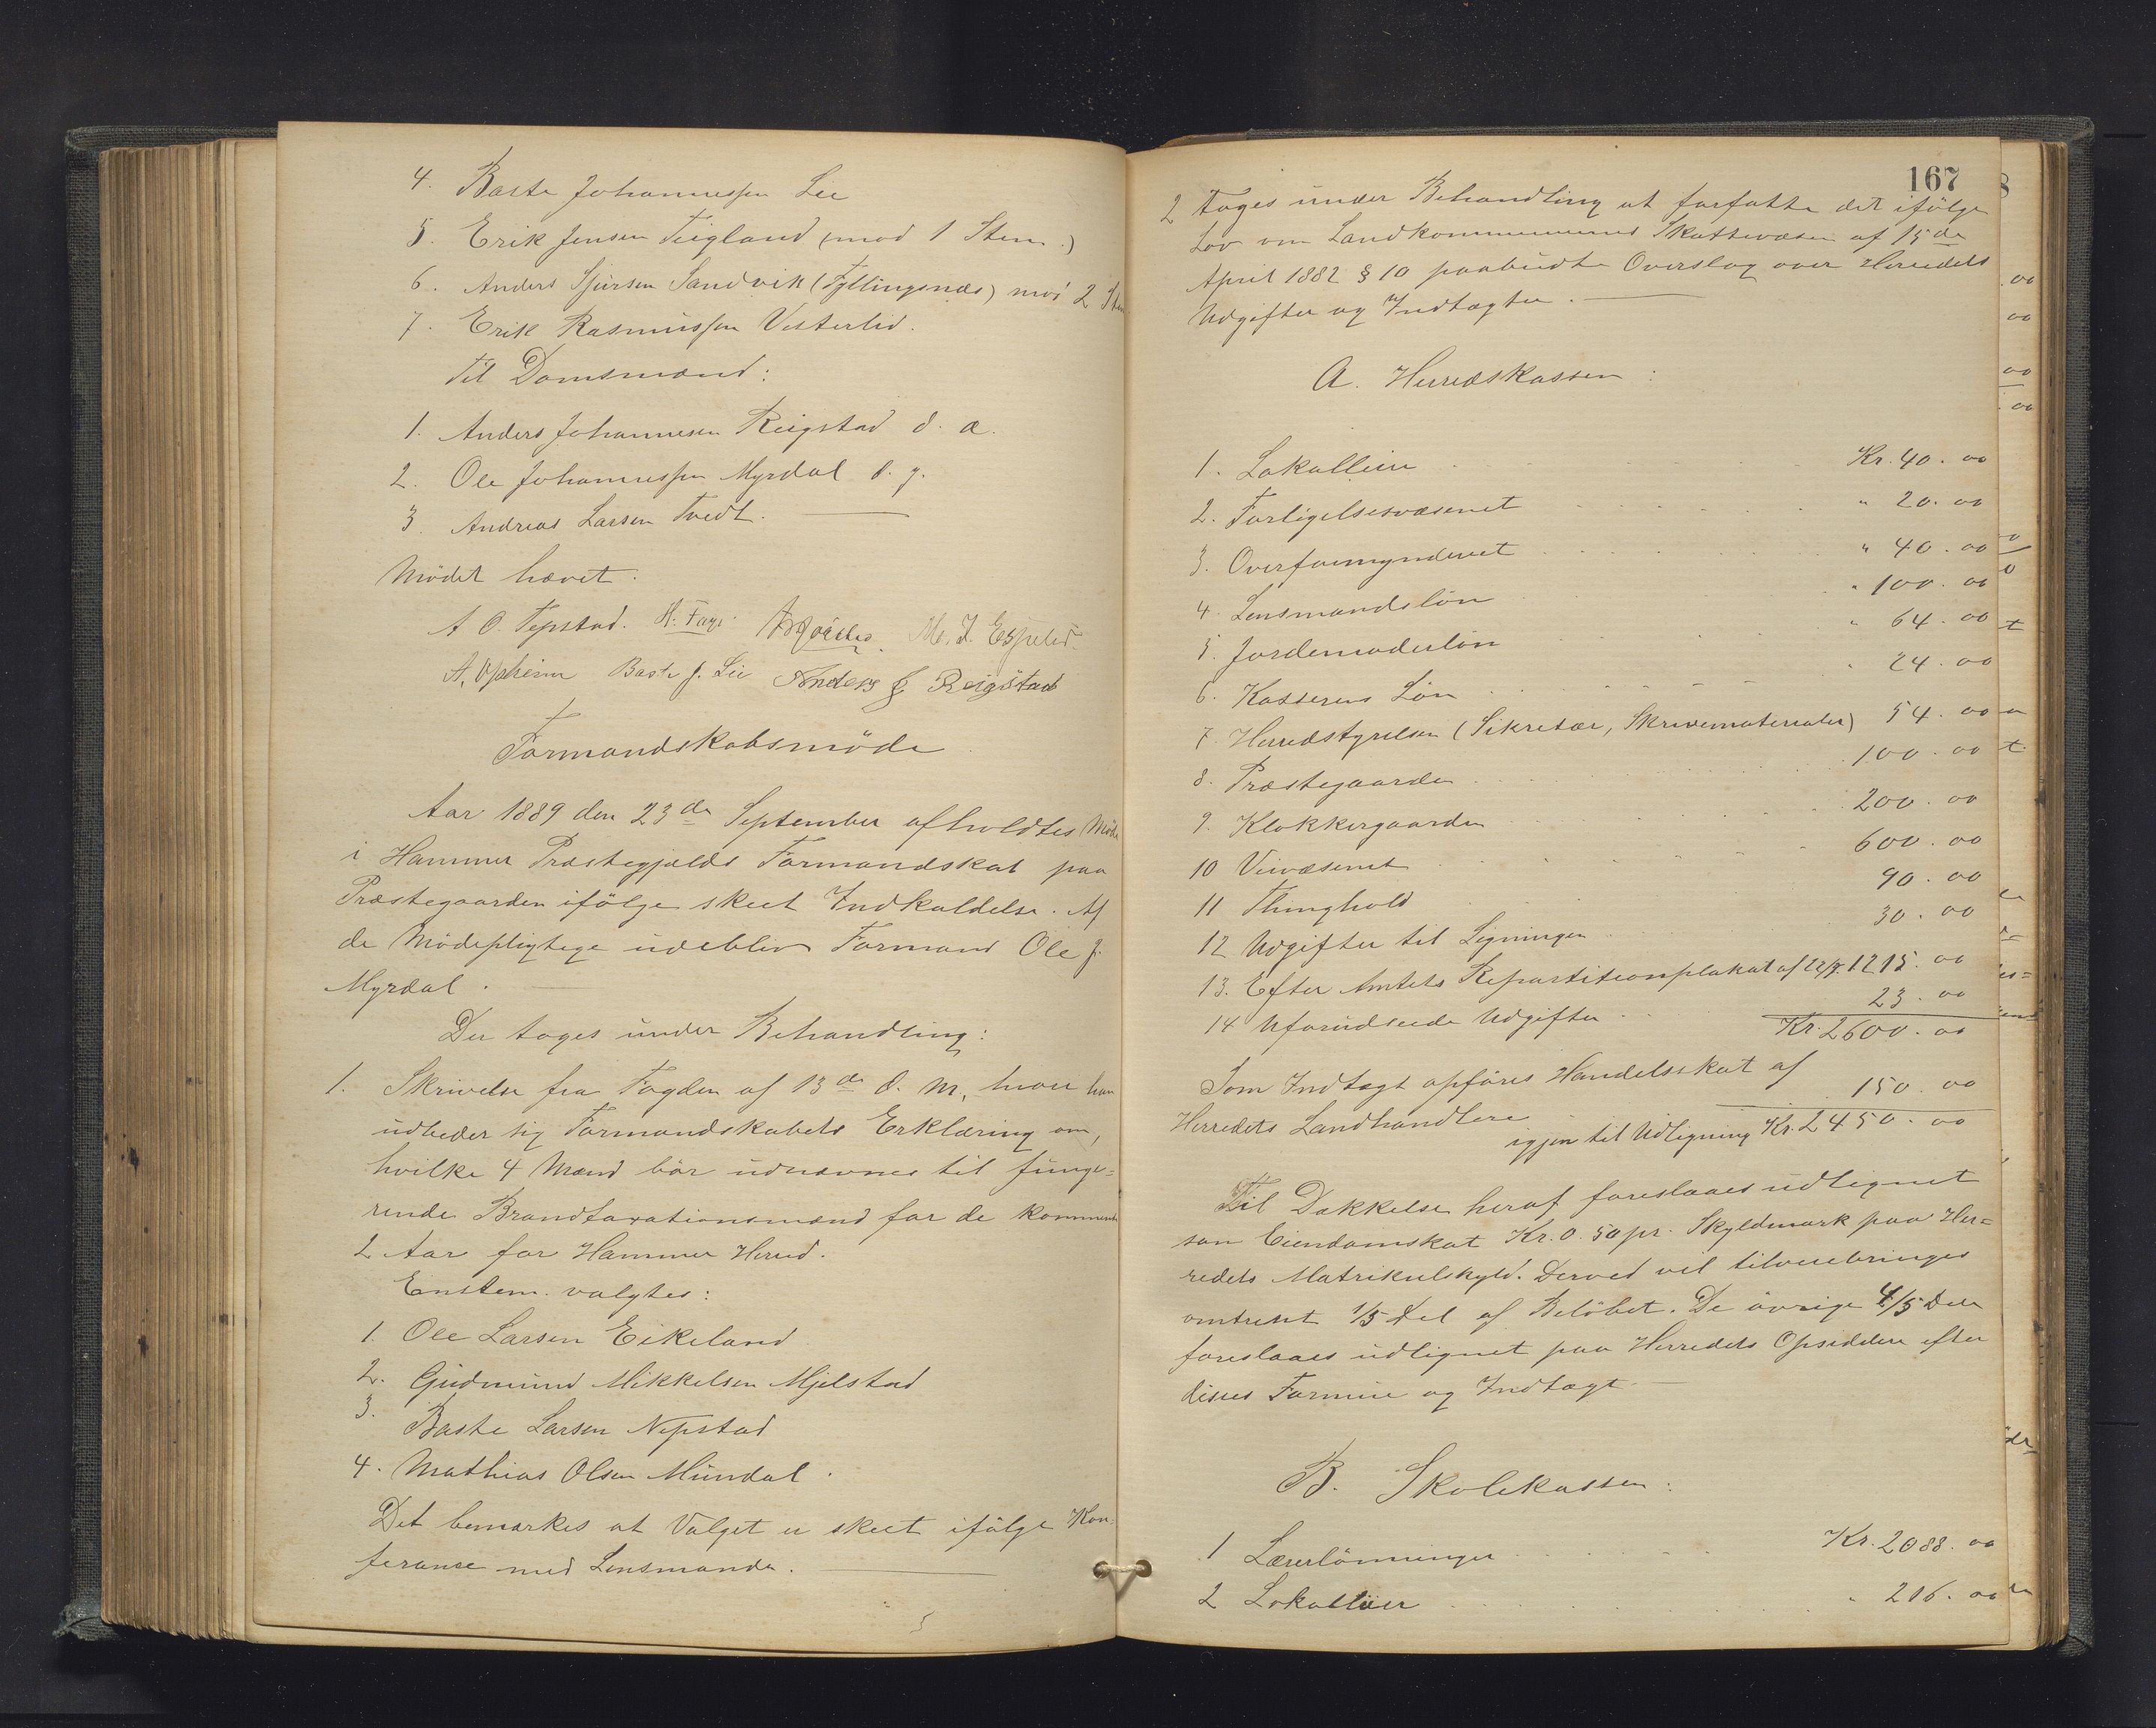 4. Baste Johannessen Lie
5. Erik Jensen Teigland (mod 1 Stem.)
6. Anders Sjursen Sandvik (Fyllingsnæs) mod 2
7. Erik Rasmussen Vesterlid.
Til Domsmænd:
1. Anders Johannesen Reigstad d. æ.
2. Ole Johannessen Myrdal d. y.
3 Andreas Larsen Tvedt.
Mödet hævet.
A O. Tepstad. H. Fage. M. J. Espelid.
A. Opheim Baste J. Lie Anders J Reigstad
Formandskabsmöde
Aar 1889 den 23de September afholdtes Möde
i Hammer Præstegjælds Formandskab paa
Præstegaarden ifölge skeet Indkaldelse. Af
de Mödepligtige udeblev Formand Ole J.
Myrdal.
Der toges under Behandling:
1. Skrivelse fra Fogden af 13de d. M., hvori han
udbeder sig Formandskabets Erklæring om,
hvilke 4 Mænd bör udnævnes til funge=
rende Brandtaxationsmænd for de kommende
2 Aar for Hammer Herred.
Enstem. valgtes:
1. Ole Larsen Eikeland
2. Gudmund Mikkelsen Mjelstad
3. Baste Larsen Nepstad
4. Mathias Olsen Mundal.
Det bemærkes at Valget er skeet ifölge Kon-
feranse med Lensmanden.
167
2 Toges under Behandling at forfatte det ifölge
Lov om Landkommunernes Skattevæsen af 15de
April 1882 § 10 paabudte Overslag over Herredets
Udgifter og Indtægter.
A. Herredskassen:
1. Lokalleie Kr. 40. 00
2. Forligelsesvæsenet " 20. 00
3. Overformynderiet " 40. 00
4. Lensmandslön " 100. 00
5. Jordemoderlön " 64. 00
6. Kasserers Lön " 24. 00
7. Herredstyrelsen (Sikretær, Skrivematerialer) 54. 00
8. Præstegaarden 100. 00
9. Klokkergaarden 200. 00
10 Veivæsenet 600. 00
11 Thinghold 90. 00
12 Udgifter til Ligningen 30. 00
13. Efter Amtets Repartitionsplakat af 1215. 00
14 Uforudseede Udgifter 23. 00
Kr. 2600. 00
Som Indtægt opföres Handelsskat af
Herredets Landhandlere 150. 00
igjen til Udligning Kr. 2450. 00
Til Dækkelse heraf foreslaaes udlignet
som Eiendomskat Kr. 0. 50 pr. Skyldmark paa Her=
redets Matrikulskyld. Derved vil tilveiebringes
omtrent 1/5 Del af Belöbet. De övrige 4/5 Dele
foreslaaes udlignet paa Herredets Opsiddere efter
disses Formue og Indtægt.
B. Skolekassen:
1 Lærerlönninger Kr. 2088. 00
2 Lokalleier " 216. 00